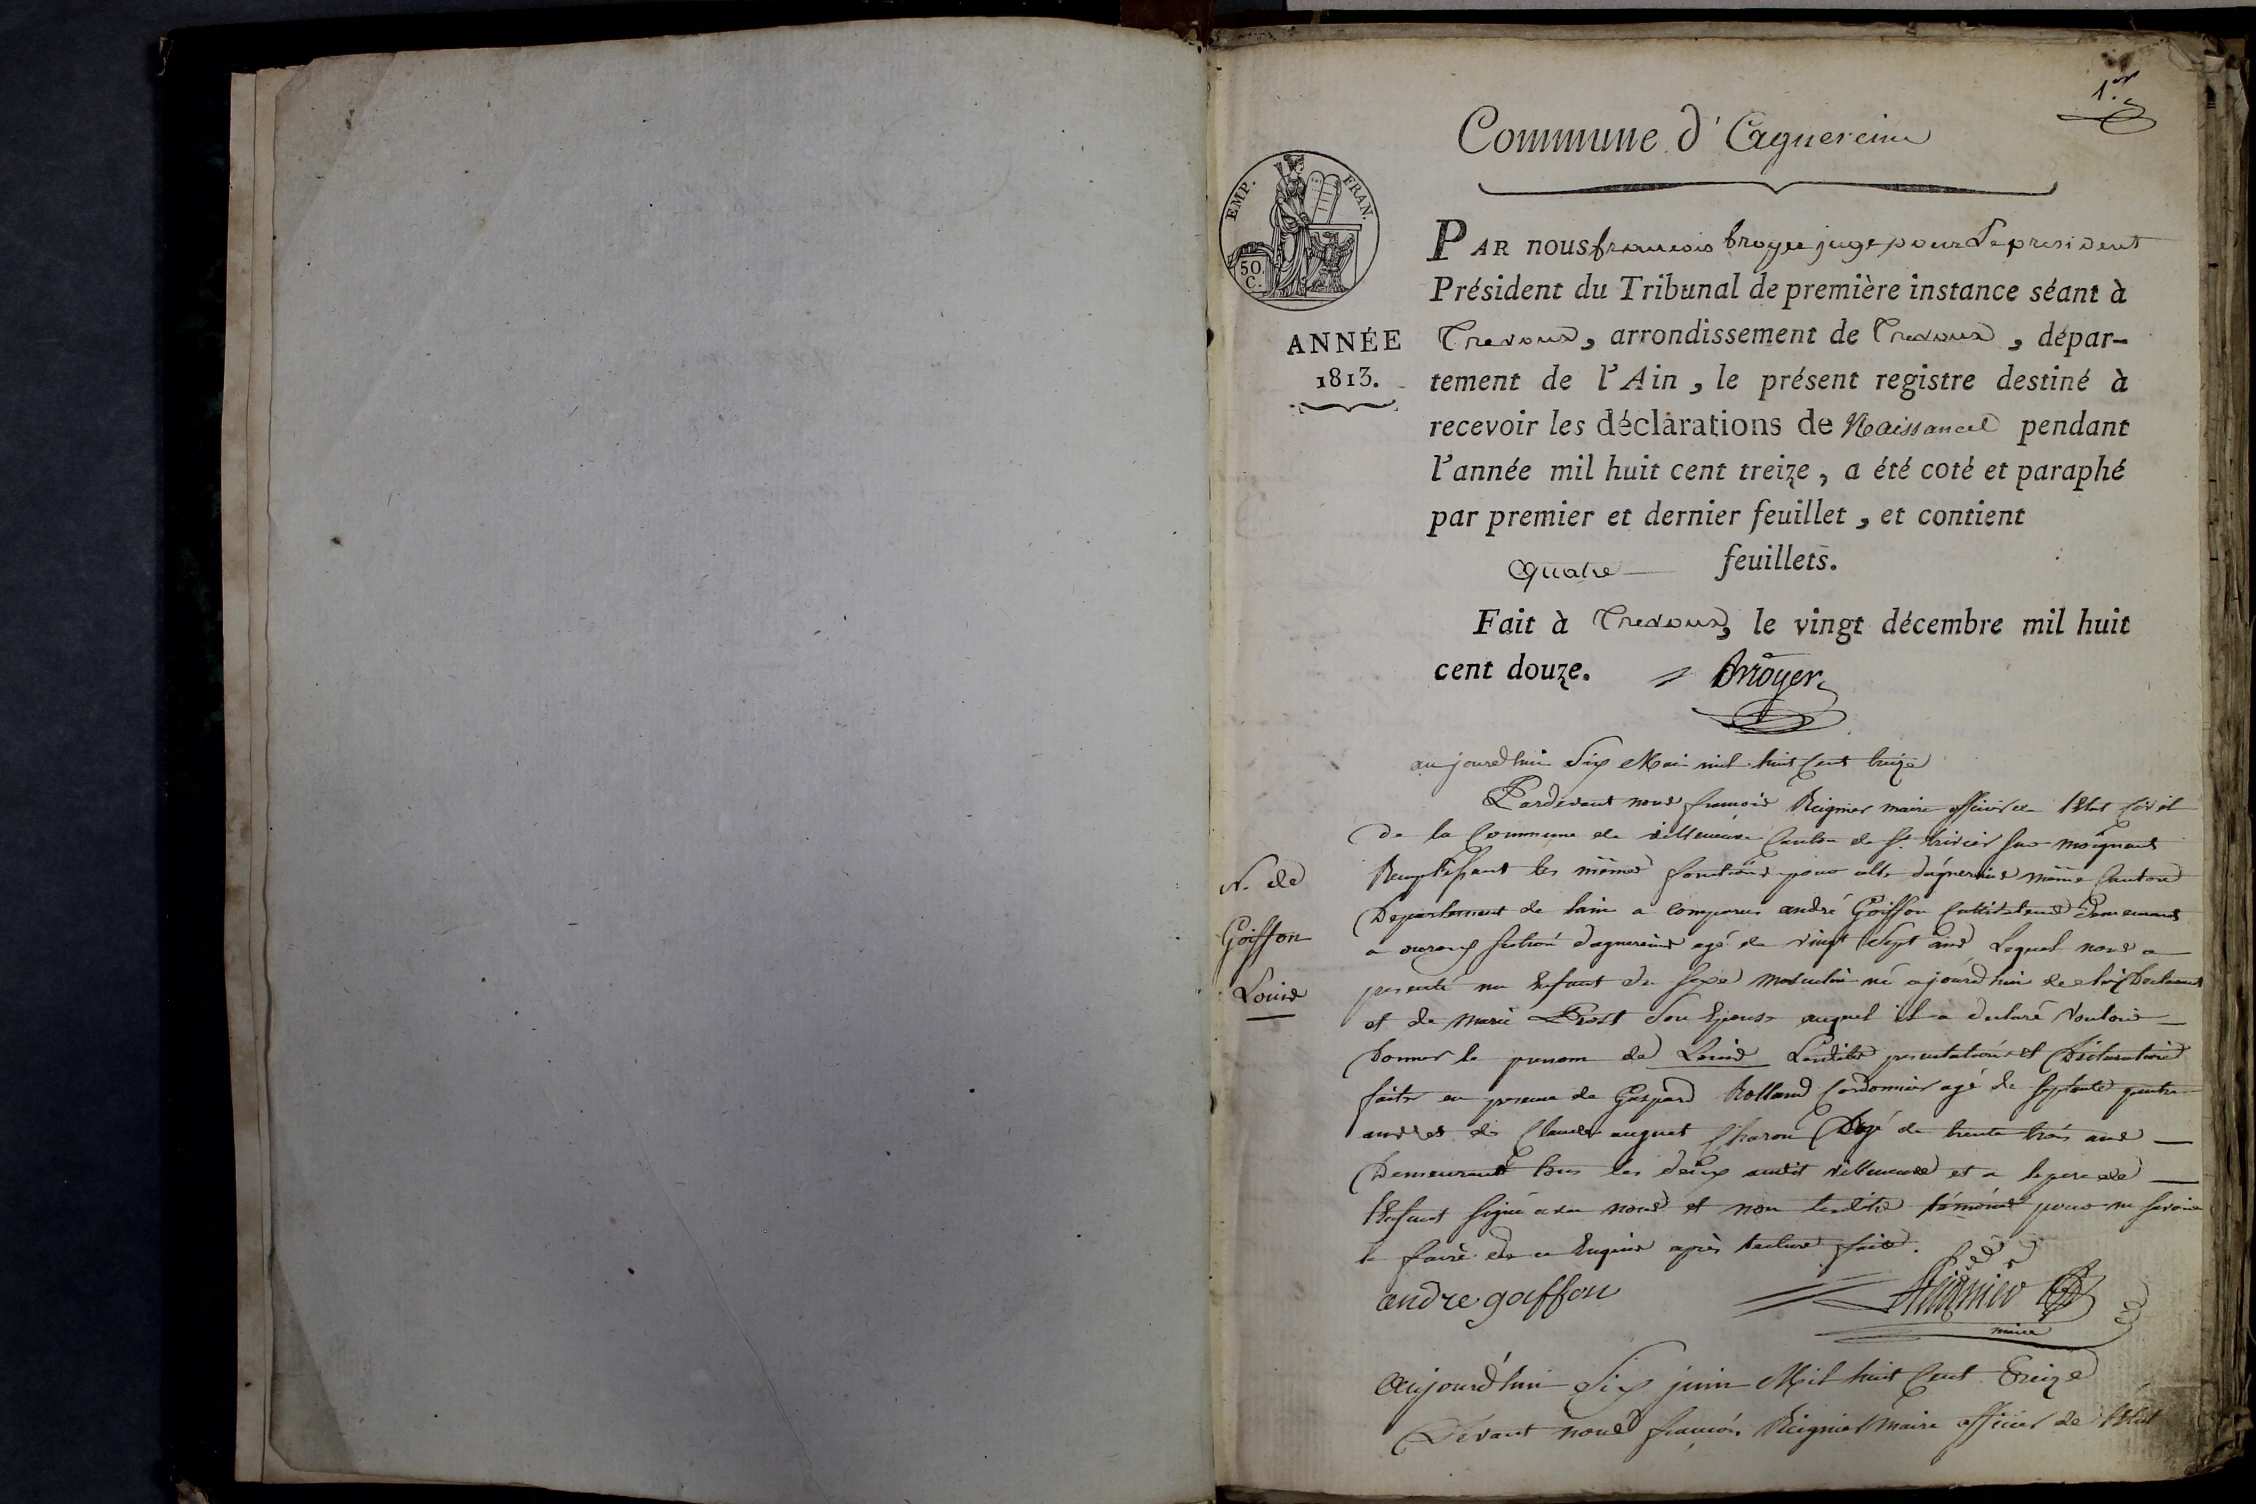 1.er
Commune d'Cagnereins
EMP. FRAN.
50. C.
ANNÉE
1813.
PAR nous francois broyer juge pour Le president
Président du Tribunal de première instance séant à
Trevoux, arrondissement de Trevoux, dépar-
tement de l'Ain, le présent registre destiné à
recevoir les déclarations de Naissance pendant
l'année mil huit cent treize, a été coté et paraphé
par premier et dernier feuillet, et contient
quatre feuillets.
Fait à Trevoux, le vingt décembre mil huit
cent douze. Broyer
aujourdhui Six Mai mil huit Cent treize
Pardevant nous françois Reignier maire officier de l'Etat Civil
de la Commune de villeneuve Canton de St. trivier sur moignans
Remplissant les mêmes fonctions pour celle d'agnereins même Canton
N. de
Goiffon
Louis
Departement de lain a comparu andré Goiffon Cultivateur Demeurant
a section dagnereins agé de vingt Sept ans Lequel nous a
presenté un Enfant du sexe masculin né ajourdhui de lui Declarant
et de marie Prost Son Epouse auquel il a declaré Vouloir
Donner le prenom de Louis Lesdites presentation et Declaration
faites en presence de Gaspard Rolland Cordonnier agé de septante quatre
ans et de Claude auguet Charon Agé de trente trois ans
Demeurant tous les deux audit villeneuve et a le pere de
l'Enfant signé avec nous et non lesdits témoins pour ne savoir
le faire de ce Enquis après Lecture faite.
andre goiffon
Reignier
maire
Aujourd'hui Six juin Mil huit Cent Treize
Devant nous françois Reignier maire officier de l'Etat